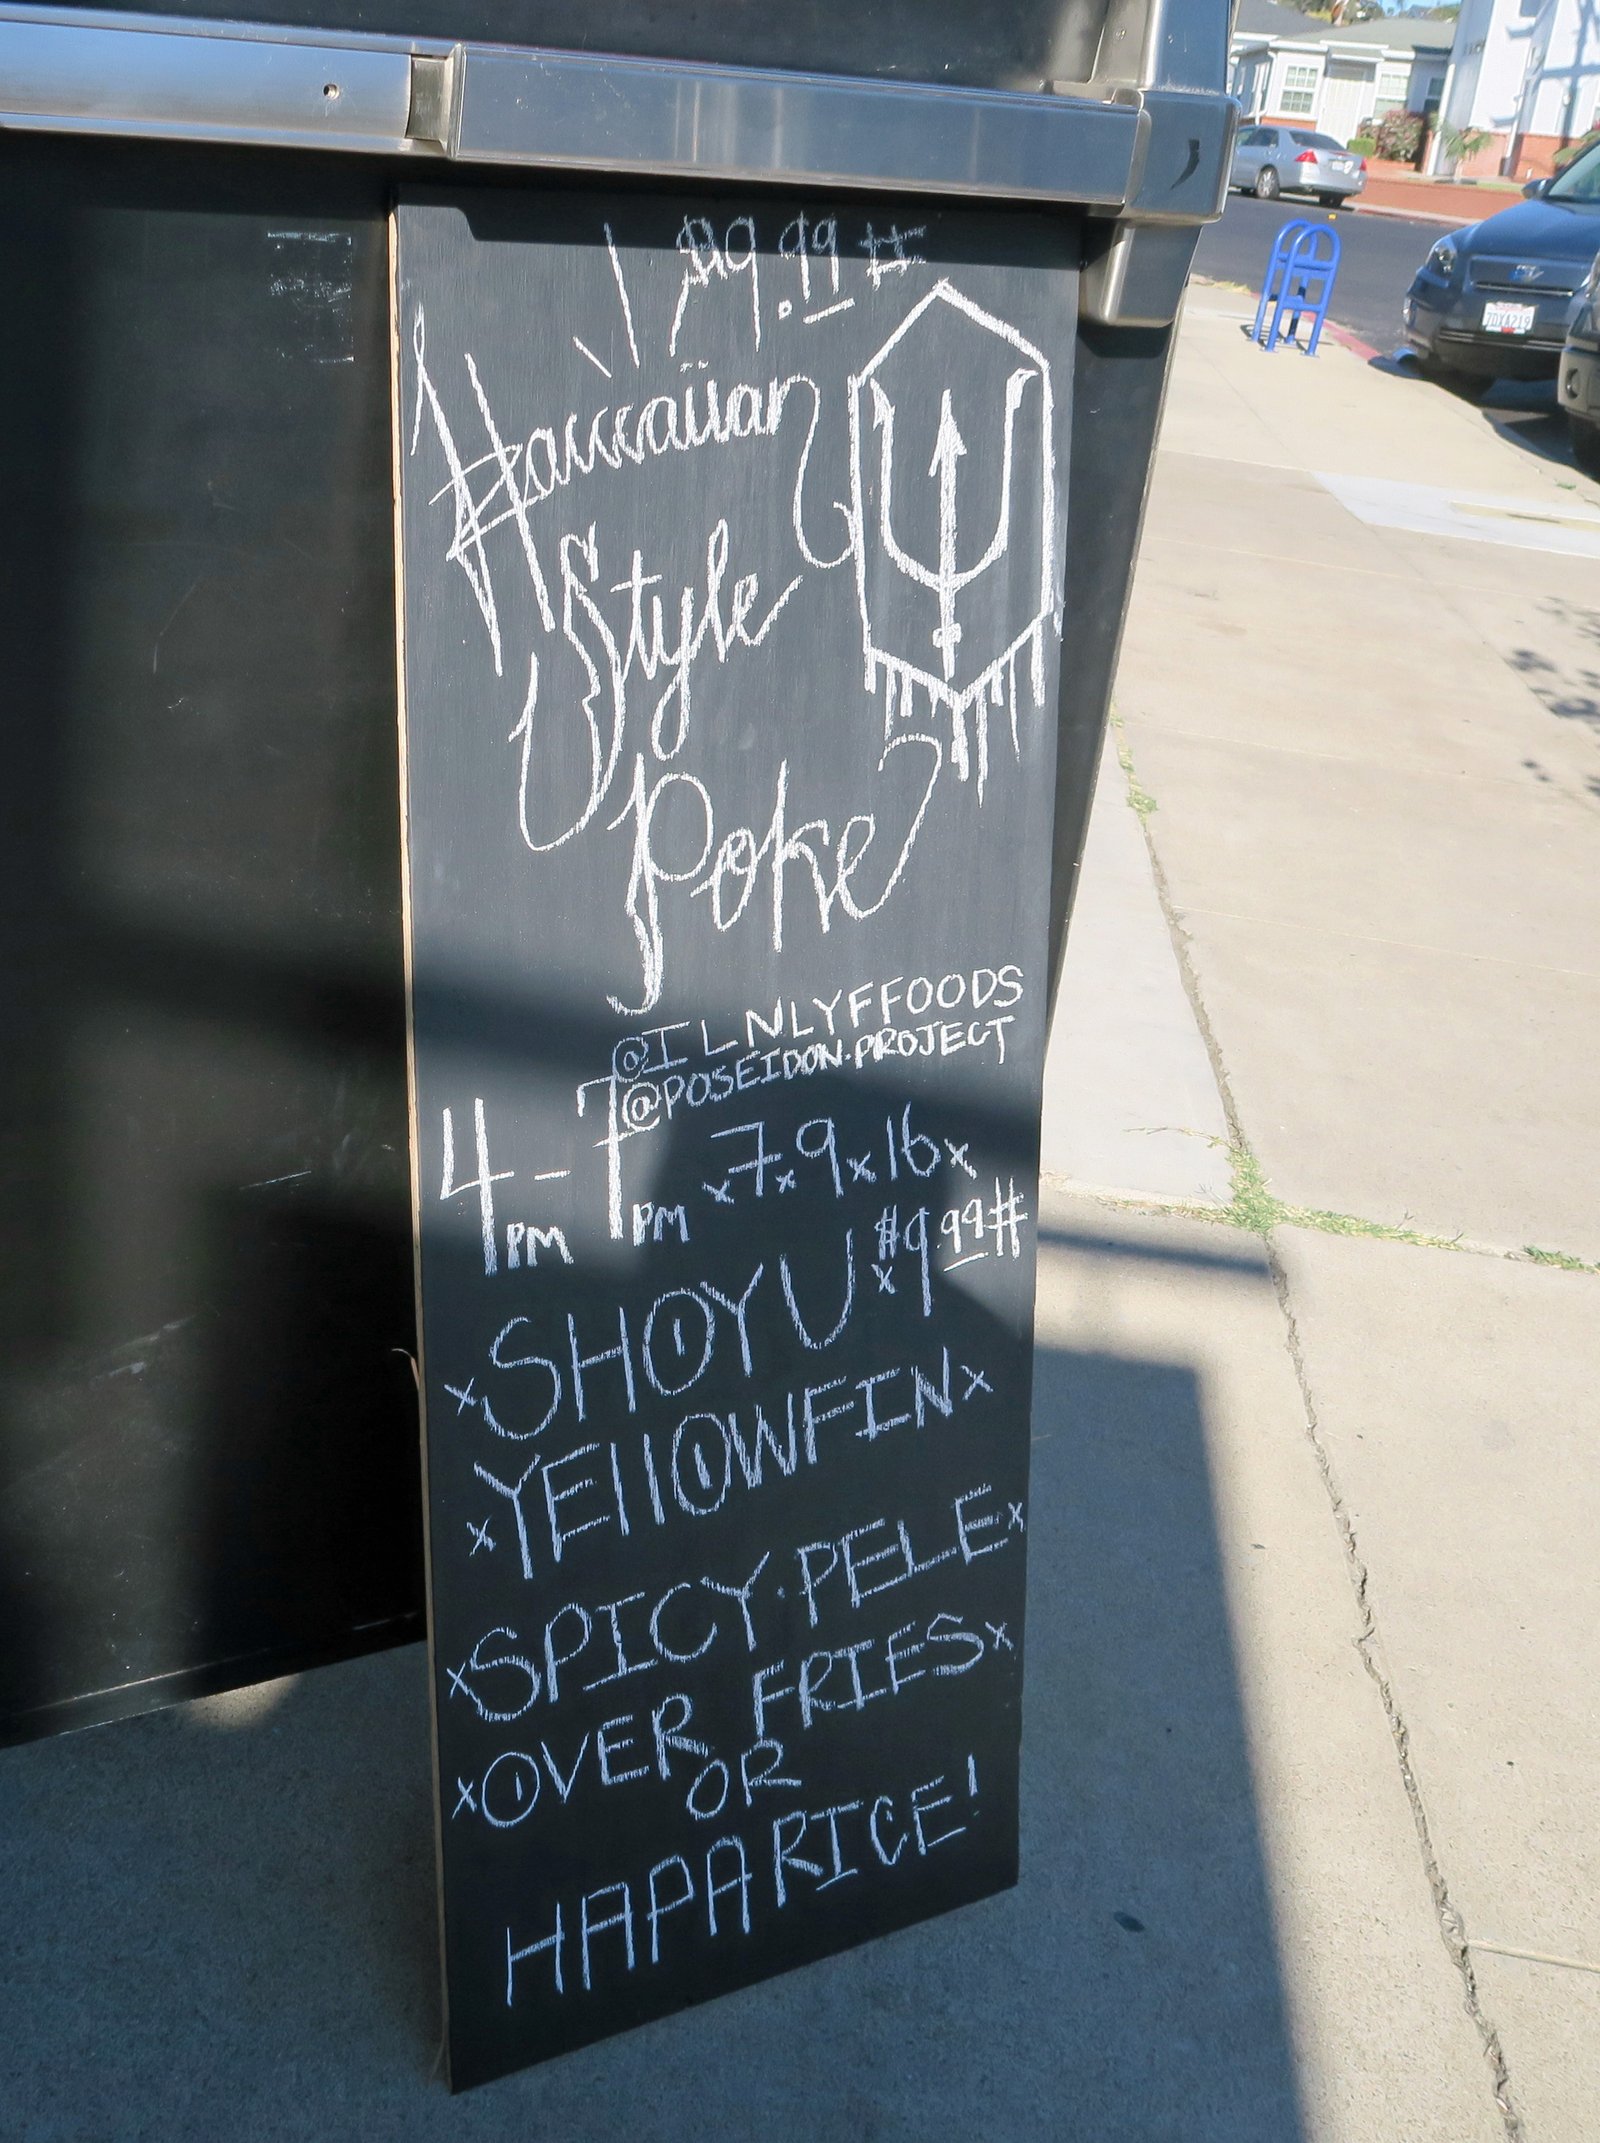 $9.99#
Hawaiian
Style
Poke
@ILNLYFFOODS
@POSEIDON.PROJECT
4PM-7PM x7x9x16x
xSHOYUx $9.99#
xYELLOWFINx
xSPICY·PELEx
xOVER FRIESx
OR
HAPA RICE!
7DXA219